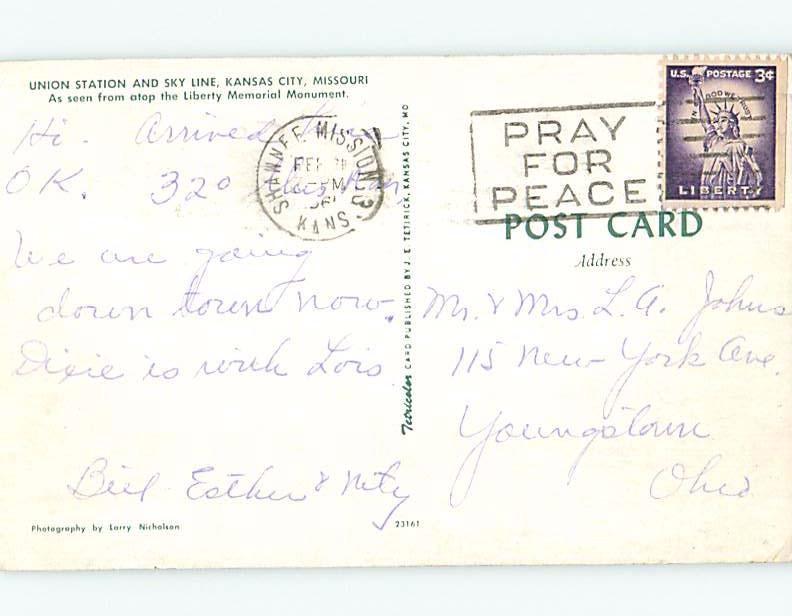 UNION STATION AND SKY LINE, KANSAS CITY, MISSOURI
As seen from atop the Liberty Memorial Monument.
Hi. Arrived
OK. 32°
We are going
down town now.
Dixie is with Lois
Bill Esther &
Photography by Larry Nicholson
23161
Tetricolor CARD PUBLISHED BY J. E. TETIRICK, KANSAS CITY, MO
SHAWNEE MISSION
FEB
PM
KANS
PRAY
FOR
PEACE
U.S. POSTAGE 3¢
IN GOD WE TRUST
LIBERTY
POST CARD
Address
Mr. & Mrs. L. A. Johns
115 New York Ave.
Youngstown
Ohio